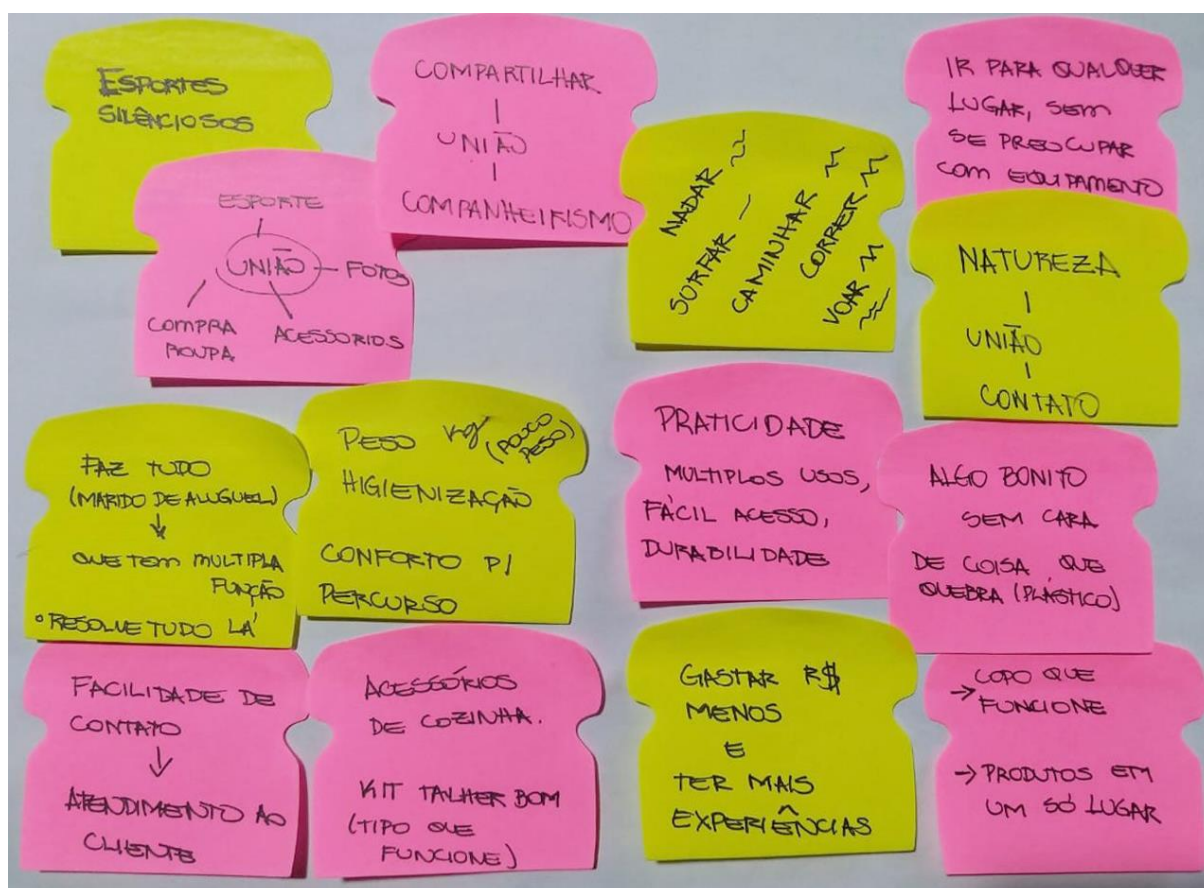 ESPORTES
SILÊNCIOSOS
COMPARTILHAR
UNIÃO
COMPANHEIRISMO
ESPORTE
UNIÃO — FOTOS
COMPRA
ROUPA
ACESSORIOS
NADAR
SURFAR
CAMINHAR
CORRER
VOAR
IR PARA QUALQUER
LUGAR, SEM
SE PREOCUPAR
COM EQUIPAMENTO
NATUREZA
UNIÃO
CONTATO
FAZ TUDO
(MARIDO DE ALUGUEL)
↓
QUE TEM MULTIPLA
FUNÇÃO
• RESOLVE TUDO LÁ
PESO Kg (POUCO
PESO)
HIGIENIZAÇÃO
CONFORTO P/
PERCURSO
PRATICIDADE
MULTIPLOS USOS,
FÁCIL ACESSO,
DURABILIDADE
ALGO BONITO
SEM CARA
DE COISA QUE
QUEBRA (PLÁSTICO)
FACILIDADE DE
CONTATO
↓
ATENDIMENTO AO
CLIENTE
ACESSÓRIOS
DE COZINHA.
KIT TALHER BOM
(TIPO QUE
FUNCIONE)
GASTAR R$
MENOS
E
TER MAIS
EXPERIÊNCIAS
→ COPO QUE
FUNCIONE
→ PRODUTOS EM
UM SÓ LUGAR